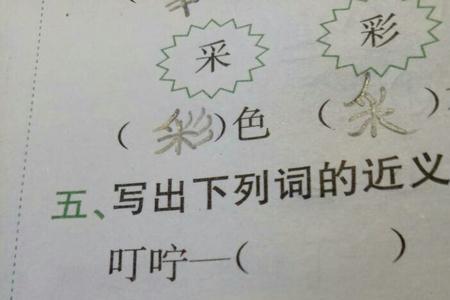 采 彩
(彩)色 (采)
五、写出下列词的近义
叮咛—( )